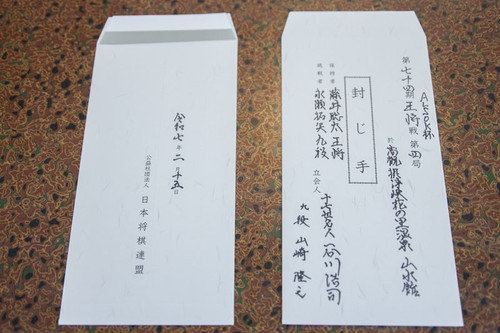 ALSOK杯
第七十四期 王将戦 第四局
於 高槻摂津峡花の里温泉 山水館
封じ手
保持者 藤井聡太王将
挑戦者 永瀬拓矢九段
立会人
十七世名人 谷川浩司
九段 山崎隆之
令和七年二月十五日
公益社団法人 日本将棋連盟